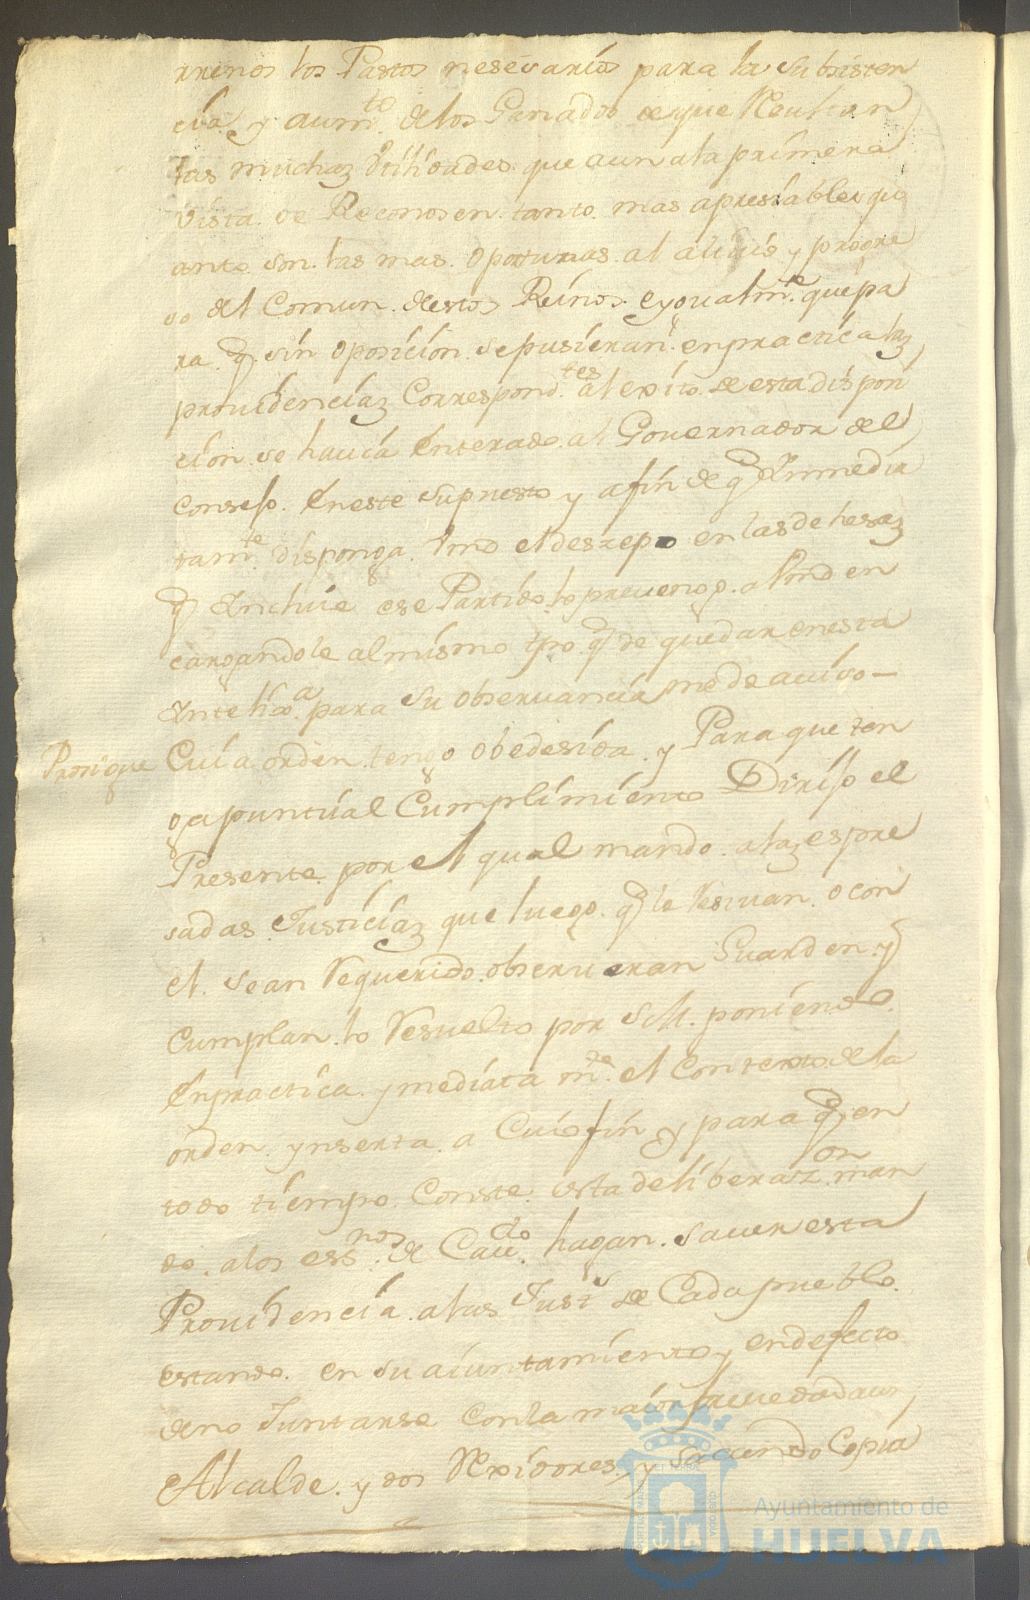 rrenos los Pastos nesesarios para la subsisten
cia, y aumto. de los Ganados de que Resultan
las muchas Utilidades que aun ala primera
vista se Reconosen tanto mas apresiables qu
anto son las mas oportunas al alivio y progre
so del Comun destos Reinos. e ygualmte. que pa
ra q. sin oposicion se pusieran en practica las
providencias Correspondtes. al exito de esta dispori
cion se havia Enterado al Governador del
Consejo. En este supuesto y afin de q Inmedia
tamte. disponga Vmd el desrepo en las dehesas
q Incluie ese Partido lo prevengo a Vmd en
cargandole al mismo tpo q de quedar en esta
Inteliga. para su observancia me de aviso—
Prosigue
Cuia orden tengo obedesida y Para que ten
ga puntual Cumplimiento Dirijo el
Presente por el qual mando alas espre
sadas Justicias que luego q le Resivan o con
el sean Requerido observeran Guarden y
Cumplan lo Resuelto por S.M. poniendo
En practica ymediata mte. el Contexto de la
orden ynserta a Cuio fin y para q en
todo tiempo Conste esta deliberazon. man
do alos essnos. de Cavdo. hagan saver esta
Providencia alas Just. de Cada pueblo
estando en su aiuntamiento y en defecto
de no Juntarse con la maior brevedad aun
Alcalde y dos Rexidores, y sacando Copia
Ayuntamiento de
HUELVA